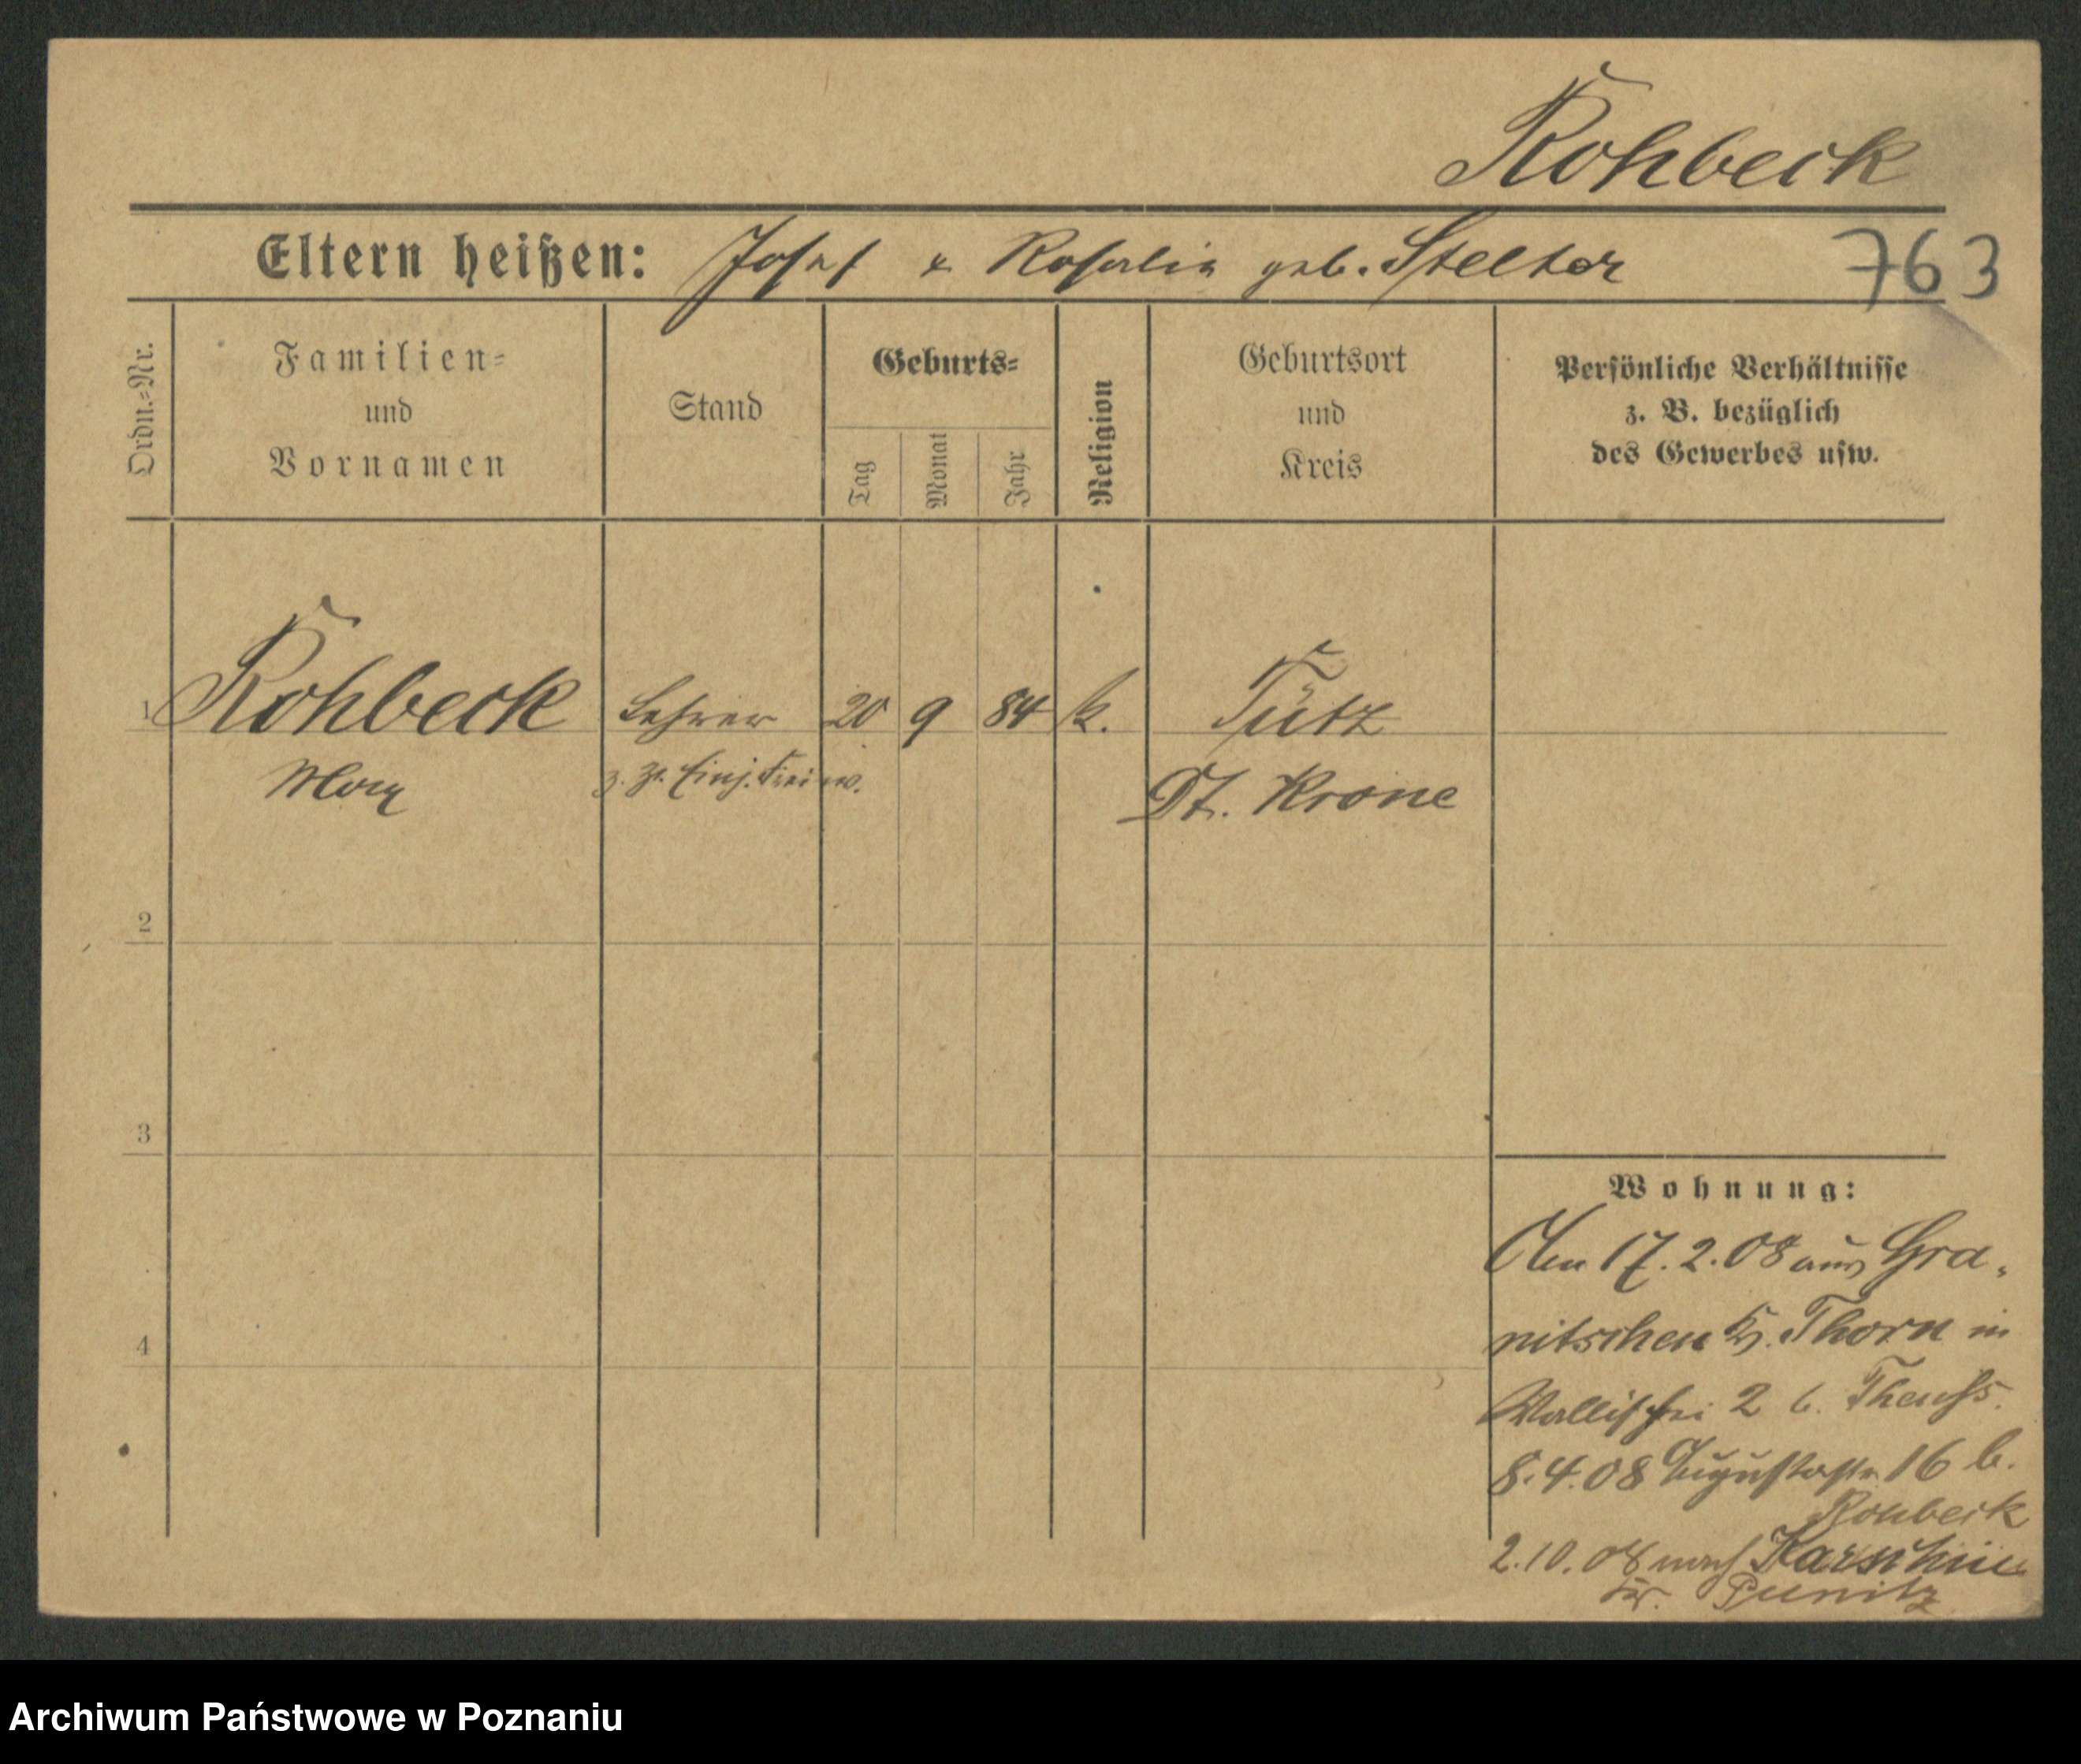 Rohbeck
Eltern heißen: Josef u Rosalia geb. Stelter
763
Ordn.-Nr.
Familien-
und
Vornamen
Stand
Geburts-
Tag
Monat
Jahr
Religion
Geburtsort
und
Kreis
Persönliche Verhältnisse
z. B. bezüglich
des Gewerbes usw.
1 Rohbeck Lehrer 20 9 84 k. Tütz
Max z. Zt. Einj. Freiw. Dt. Krone
2
3
4
Wohnung:
Am 17.2.08 aus Gra-
nitschen Kr. Thorn in
Wallischei 2 b.
8.4.08 Augustastr. 16 b.
Rohbeck
2.10.08 nach
Kr. Punitz
Archiwum Państwowe w Poznaniu